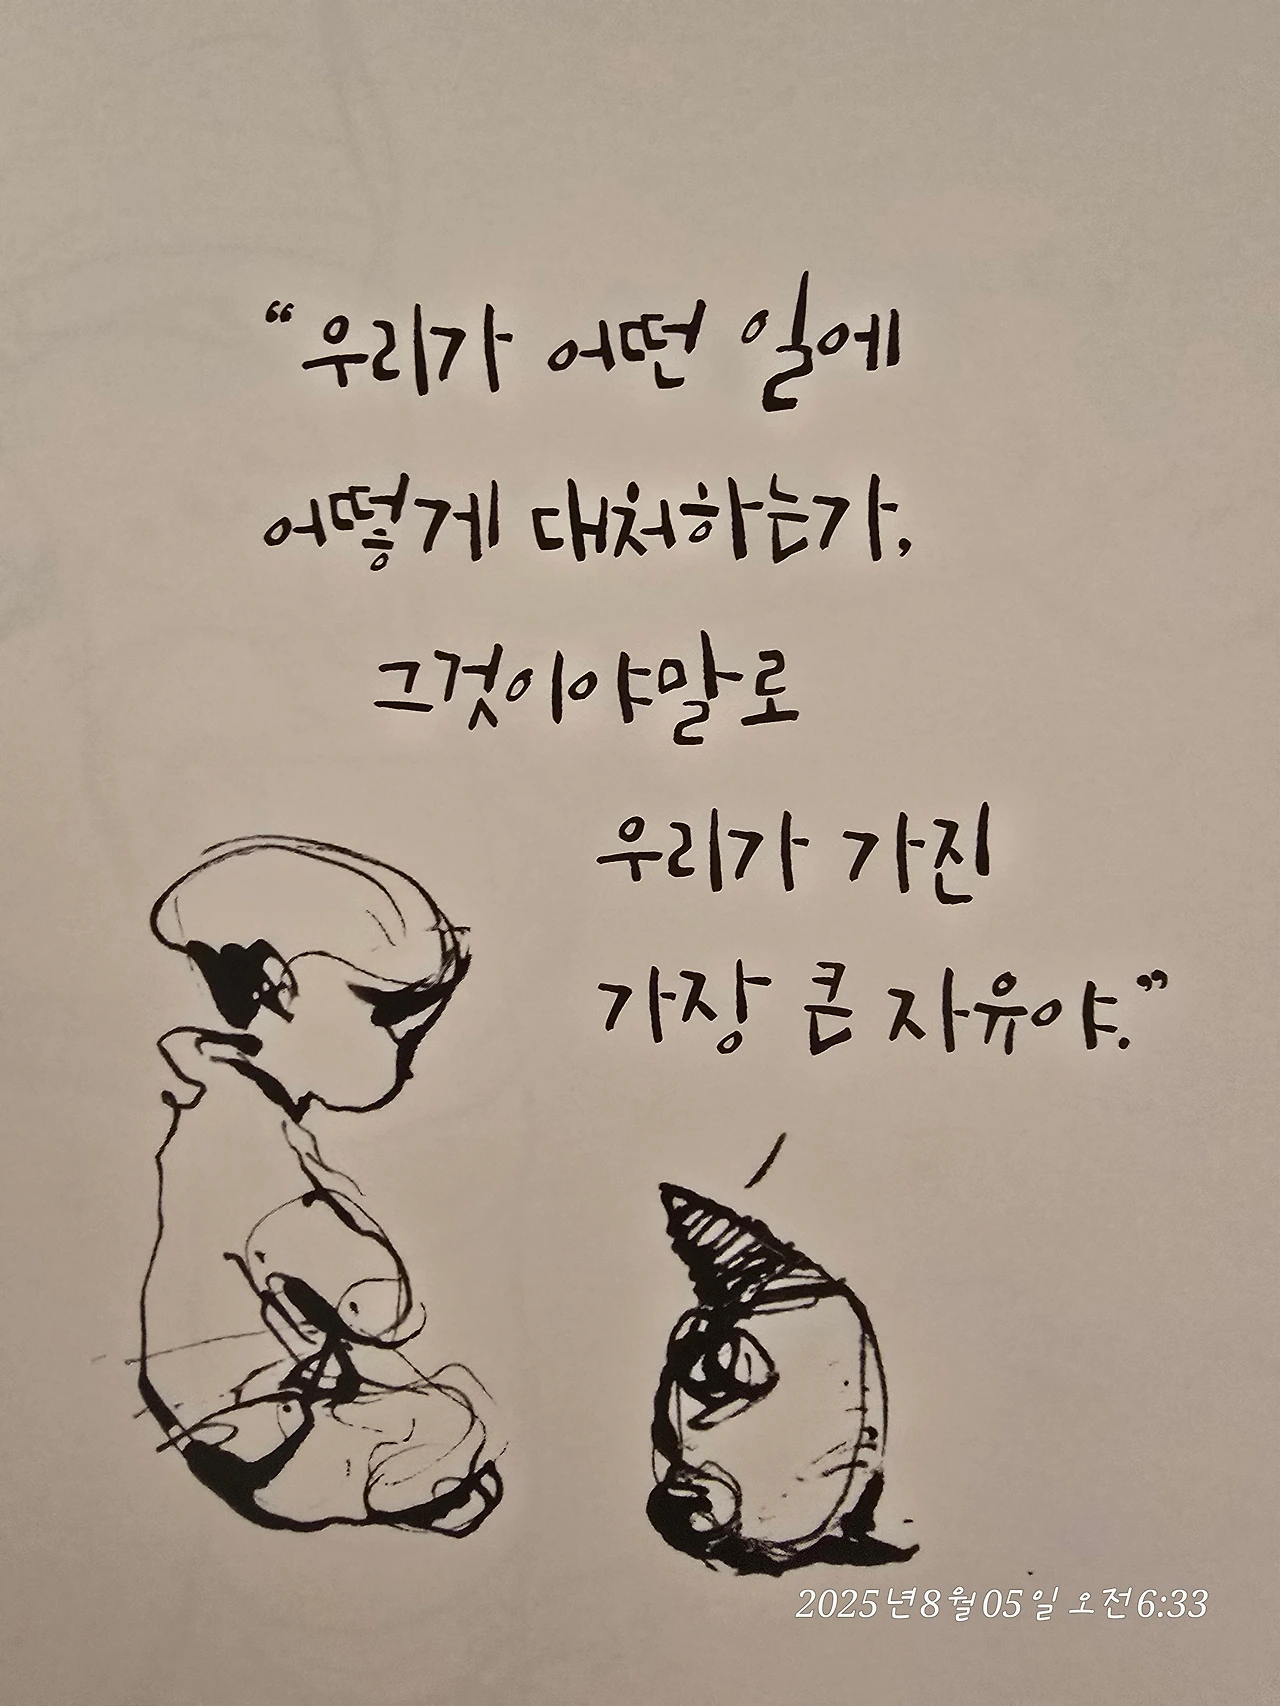 “우리가 어떤 일에
어떻게 대처하는가,
그것이야말로
우리가 가진
가장 큰 자유야.”
2025년 8월 05일 오전 6:33